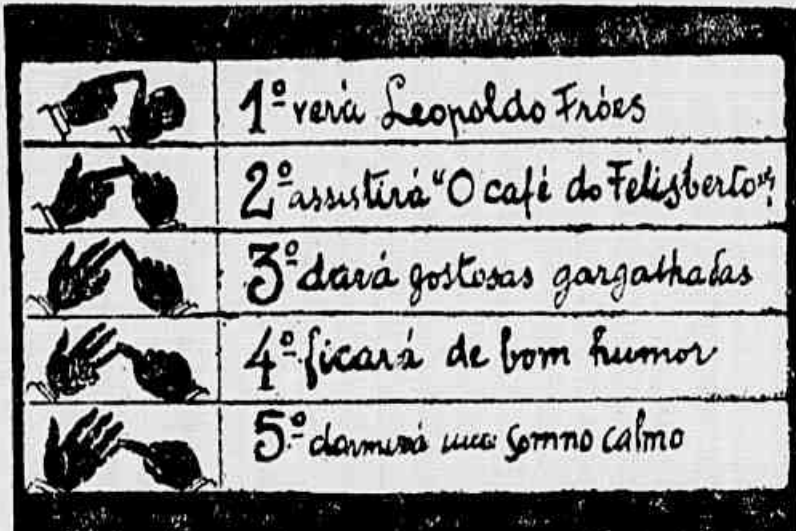 1º verá Leopoldo Fróes
2º assistirá "O café do Felisberto";
3º dará gostosas gargalhadas
4º ficará de bom humor
5º dormirá um somno calmo